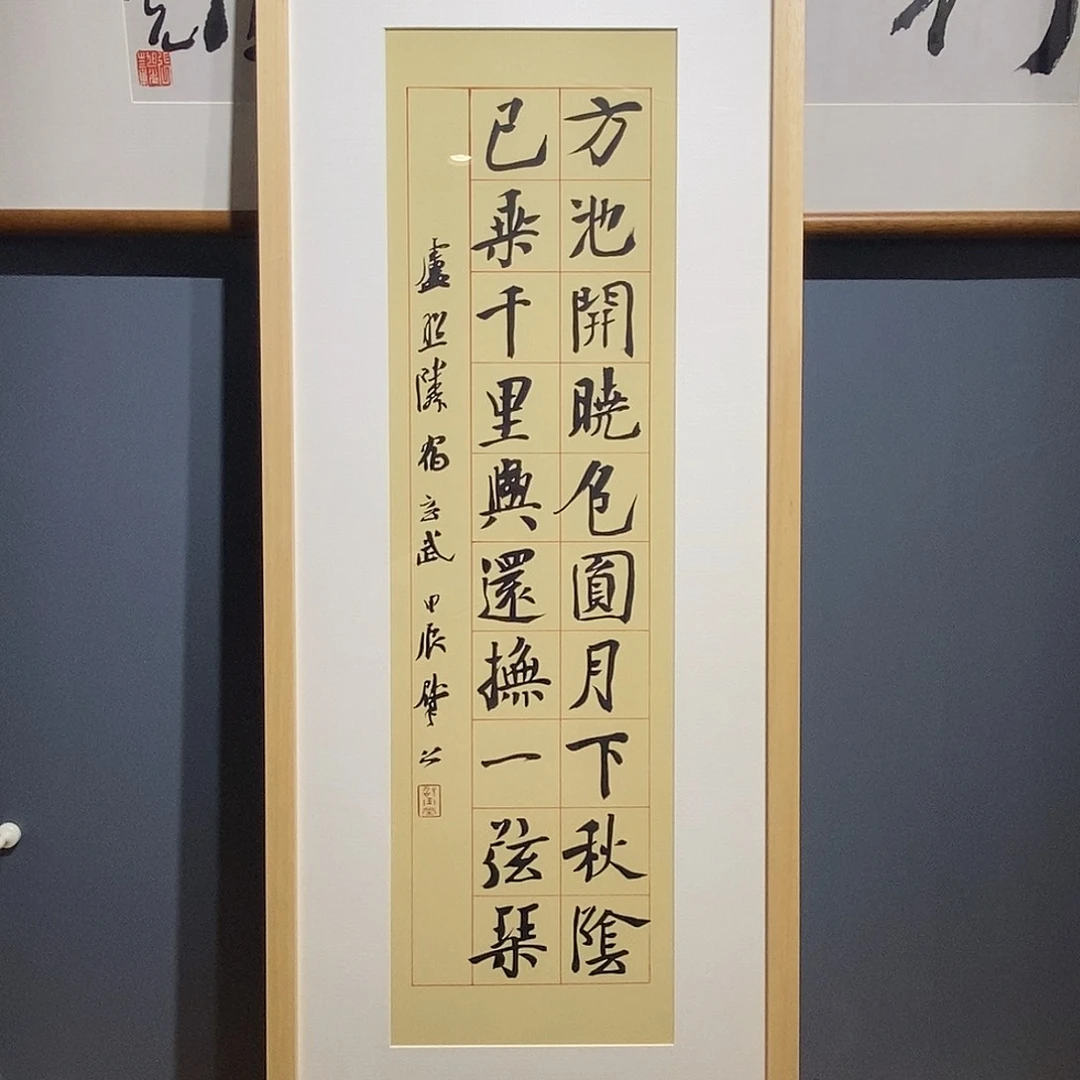 方池開曉色圓月下秋陰
已乘千里興還撫一弦琴
盧照隣宿玄武甲辰肇公